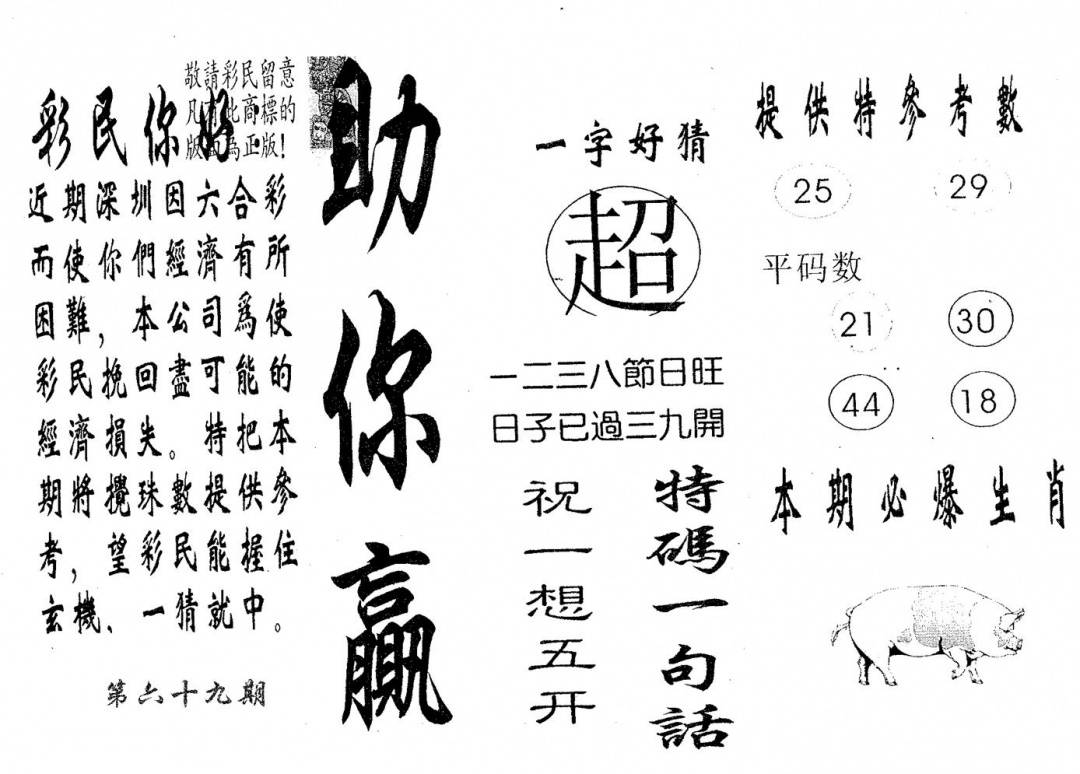 敬請彩民留意
凡有此商標的
版面為正版!
彩民你好:
近期深圳因六合彩
而使你們經濟有所
困難，本公司爲使
彩民挽回盡可能的
經濟損失。特把本
期將攪珠數提供參
考，望彩民能握住
玄機、一猜就中。
第六十九期
助你贏
一字好猜
超
一二三八節日旺
日子已過三九開
特碼一句話
祝一想五开
提供特參考數
25 29
平码数
21 30
44 18
本期必爆生肖